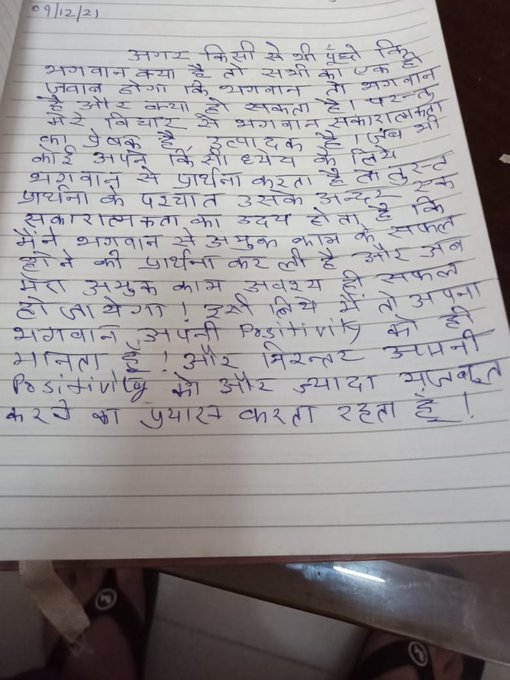 09/12/21
अगर किसी से भी पूंछो कि
भगवान क्या है तो सभी का एक ही
जवाब होगा कि भगवान तो भगवान
है और क्या हो सकता है। परन्तु
मेरे विचार से भगवान सकारात्मकता
का प्रेषक है उत्पादक है। जब भी
कोई अपने किसी ध्येय के लिये
भगवान से प्रार्थना करता है तो तुरन्त
प्रार्थना के पश्चात उसके अन्दर एक
सकारात्मकता का उदय होता है कि
मैंने भगवान से अमुक काम के सफल
होने की प्रार्थना कर ली है और अब
मेरा अमुक काम अवश्य ही सफल
हो जायेगा! इसी लिये मैं तो अपना
भगवान अपनी Positivity को ही
मानता हूँ! और निरन्तर अपनी
Positivity को और ज्यादा मजबूत
करने का प्रयास करता रहता हूँ!